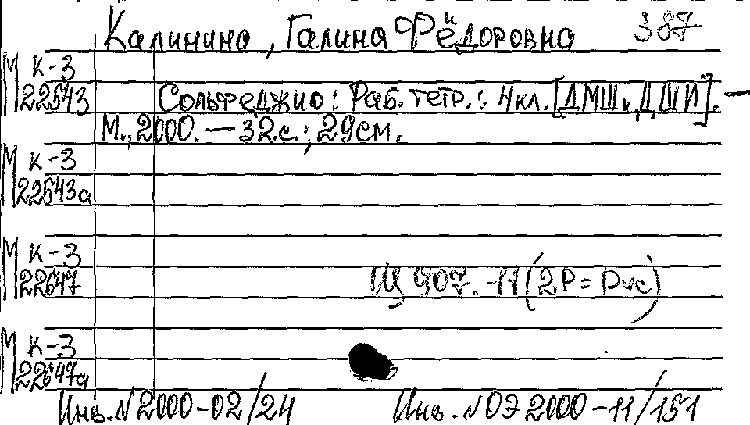 Калинина, Галина Фёдоровна 387
М К-3
22643 Сольфеджио: Раб. тетр.: 4кл. [ДМШ и ДШИ]. —
М., 2000. — 32с.; 29см.
М К-3
22643а
М К-3
22647 Щ 907.-11(2Р=Рус)
М К-3
22647а
Инв. N 2000-02/24 Инв. N ОЭ 2000-11/151